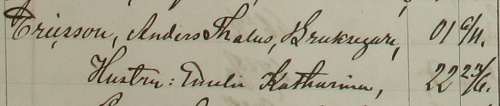 Ericsson, Anders Thalus, Bruksegare, 01 6/11.
Hustru: Emelie Katharina, 22 23/6.